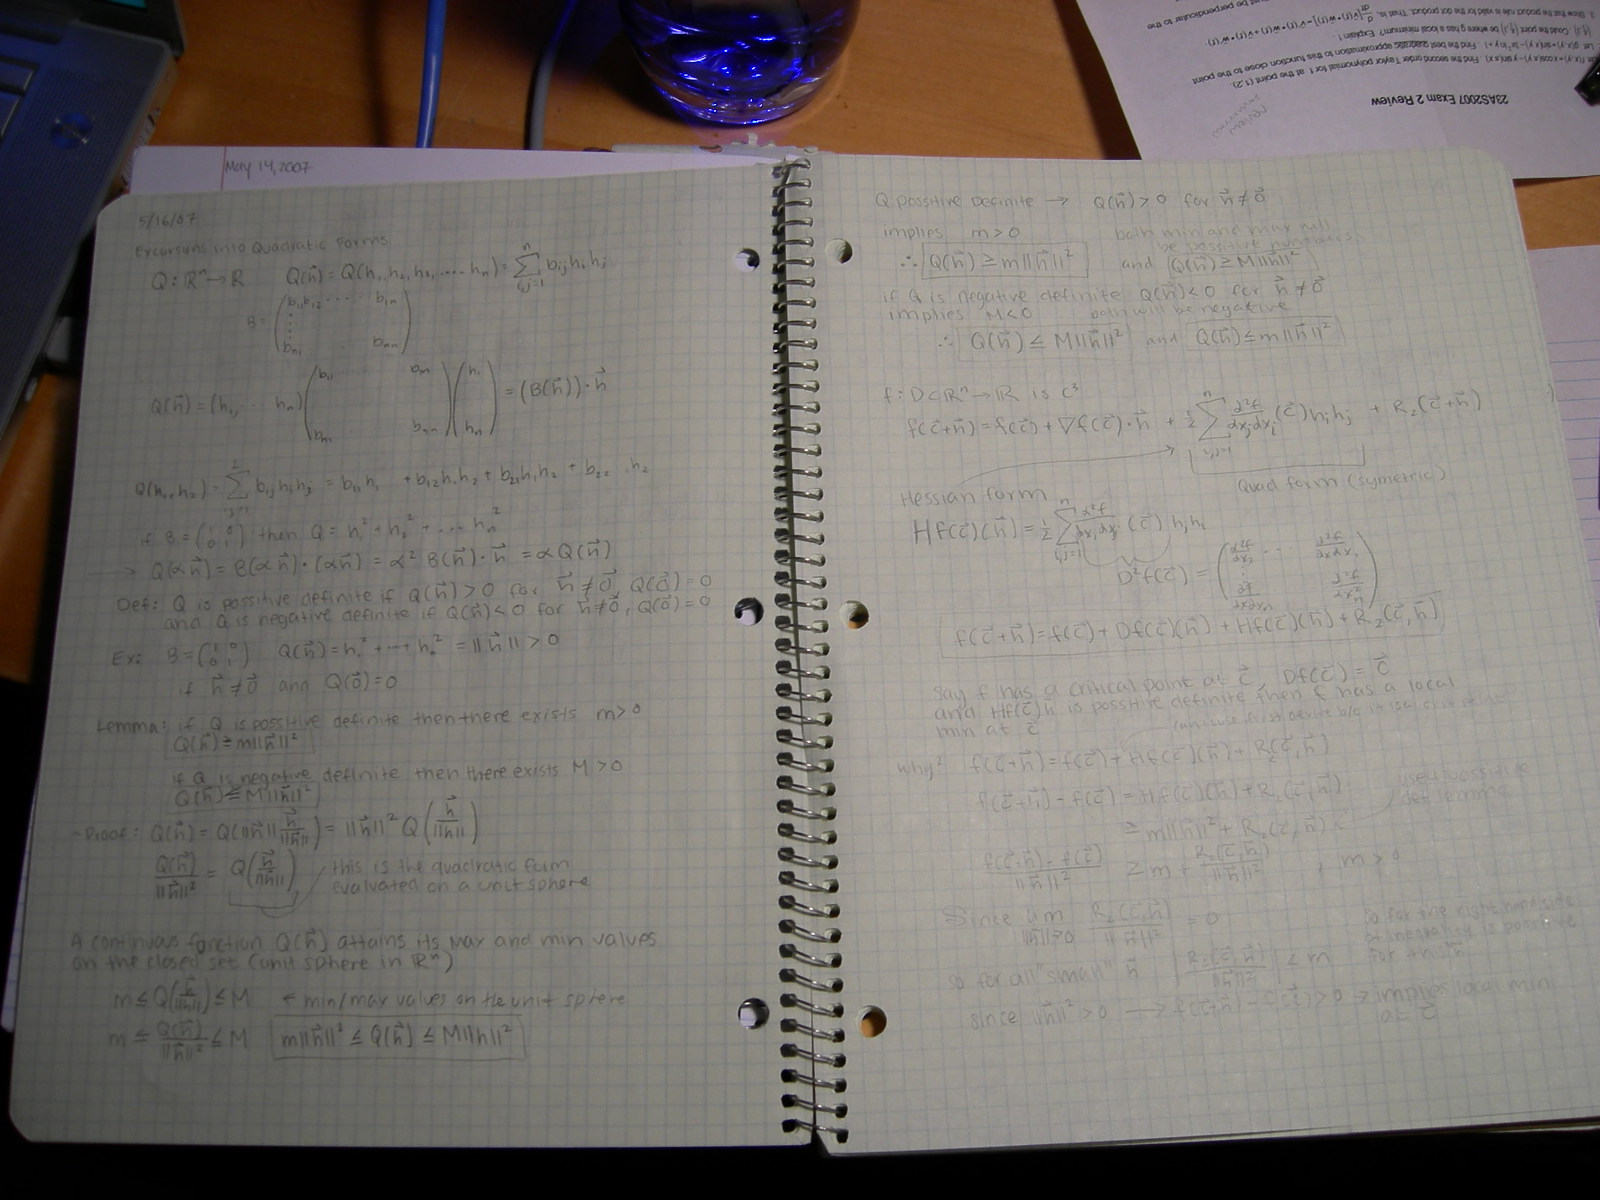 May 14, 2007
5/16/07
Excursions into Quadratic Forms
Q: ℝⁿ → ℝ Q(h⃗) = Q(h₁, h₂, h₃, .... hₙ) = Σⁿᵢ,ⱼ₌₁ bᵢⱼ hᵢ hⱼ
B = ( b₁₁ b₁₂ ...... b₁ₙ
bₙ₁ . bₙₙ )
Q(h⃗) = (h₁, ... hₙ) ( b₁₁ bₙ₁ ) ( h₁ ) = (B(h⃗))·h⃗
( bₙ₁ bₙₙ ) ( hₙ )
Q(h₁, h₂) = Σ²ᵢ,ⱼ₌₁ bᵢⱼ hᵢ hⱼ = b₁₁ h₁ + b₁₂ h₁ h₂ + b₂₁ h₁ h₂ + b₂₂ h₂
if B = (1 0 / 0 1) then Q = h₁² + h₂² + ... hₙ²
→ Q(αh⃗) = B(αh⃗)·(αh⃗) = α² B(h⃗)·h⃗ = αQ(h⃗)
Def: Q is possitive definite if Q(h⃗) > 0 for h⃗ ≠ 0⃗, Q(0⃗) = 0
and Q is negative definite if Q(h⃗) < 0 for h⃗ ≠ 0⃗, Q(0⃗) = 0
Ex: B = (1 0 / 0 1) Q(h⃗) = h₁² + ... hₙ² = ||h⃗|| > 0
if h⃗ ≠ 0⃗ and Q(0⃗) = 0
Lemma: if Q is possitive definite then there exists m > 0
Q(h⃗) ≥ m||h⃗||²
if Q is negative definite then there exists M > 0
Q(h⃗) ≤ M||h⃗||²
Proof: Q(h⃗) = Q(||h⃗|| h⃗/||h⃗||) = ||h⃗||² Q(h⃗/||h⃗||)
Q(h⃗)/||h⃗||² = Q(h⃗/||h⃗||) this is the quadratic form
evaluated on a unit sphere
A continuous function Q(h⃗) attains its max and min values
on the closed set (unit sphere in ℝⁿ)
m ≤ Q(h⃗/||h||) ≤ M ← min/max values on the unit sphere
m ≤ Q(h⃗)/||h⃗||² ≤ M m||h⃗||² ≤ Q(h⃗) ≤ M||h||²
Q possitive definite → Q(h⃗) > 0 for h⃗ ≠ 0⃗
implies m > 0 both min and max will
be possitive numbers
∴ Q(h⃗) ≥ m||h⃗||² and Q(h⃗) ≥ M||h⃗||²
if Q is negative definite Q(h⃗) < 0 for h⃗ ≠ 0⃗
implies M < 0 both will be negative
∴ Q(h⃗) ≤ M||h⃗||² and Q(h⃗) ≤ m||h⃗||²
f: D⊂ℝⁿ → ℝ is C³
f(c⃗+h⃗) = f(c⃗) + ∇f(c⃗)·h⃗ + ½ Σⁿᵢ,ⱼ₌₁ ∂²f/∂xⱼ∂xᵢ (c⃗) hᵢ hⱼ + R₂(c⃗+h⃗)
Hessian form Quad form (symetric)
Hf(c⃗)(h⃗) = ½ Σⁿᵢ,ⱼ₌₁ ∂²f/∂xᵢ∂xⱼ (c⃗) hⱼ hᵢ
D²f(c⃗) =
f(c⃗+h⃗) = f(c⃗) + Df(c⃗)(h⃗) + Hf(c⃗)(h⃗) + R₂(c⃗, h⃗)
Say f has a critical point at c⃗, Df(c⃗) = 0⃗
and Hf(c⃗)h is possitive definite then f has a local
min at c⃗
why? f(c⃗+h⃗) = f(c⃗) + Hf(c⃗)(h⃗) + R₂(c⃗, h⃗)
f(c⃗+h⃗) - f(c⃗) = Hf(c⃗)(h⃗) + R₂(c⃗, h⃗) used possitive
def lemma
≥ m||h⃗||² + R₂(c⃗, h⃗)
f(c⃗+h⃗) - f(c⃗)/||h⃗||² ≥ m + R₂(c⃗, h⃗)/||h⃗||² , m > 0
Since lim ||h⃗||→0 R₂(c⃗, h⃗)/||h⃗||² = 0 so for the right hand side
of inequality is possitive
for this h⃗
so for all "small" h⃗ |R₂(c⃗, h⃗)/||h⃗||²| < m
since ||h⃗||² > 0 → f(c⃗+h⃗) - f(c⃗) > 0 → implies local min
at c⃗
23AS2007 Exam 2 Review